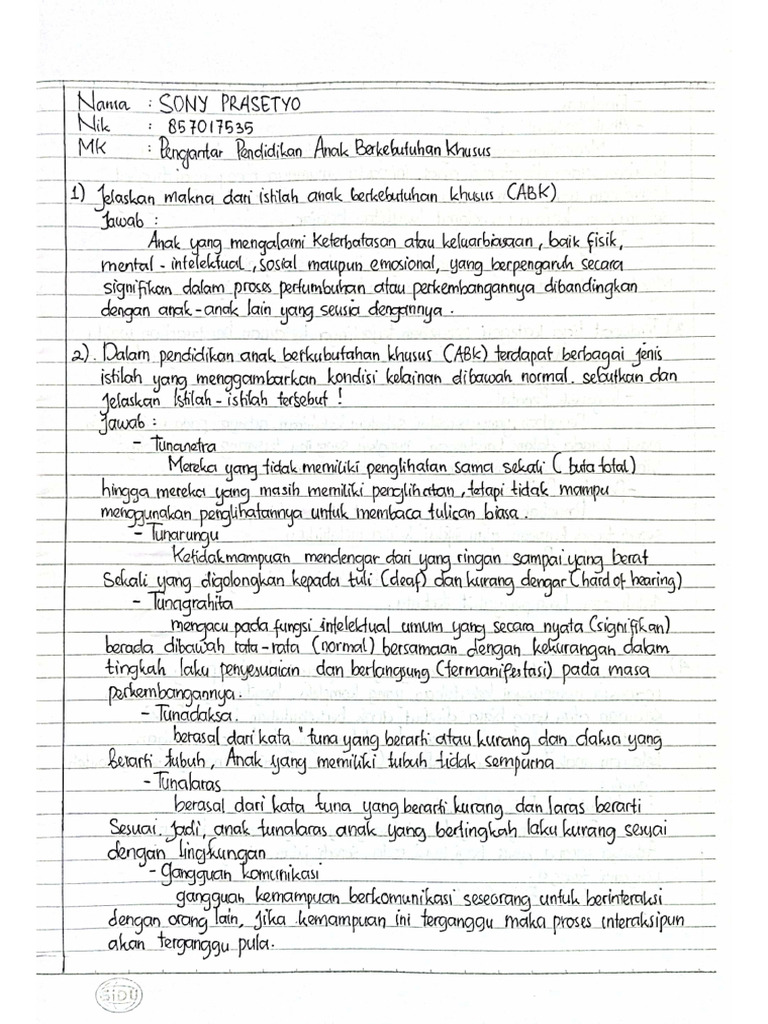 Nama : SONY PRASETYO
Nik : 857017535
MK : Pengantar Pendidikan Anak Berkebutuhan Khusus
1) Jelaskan makna dari istilah anak berkebutuhan khusus (ABK)
Jawab :
Anak yang mengalami Keterbatasan atau keluarbiasaan, baik fisik,
mental - intelektual, sosial maupun emosional, yang berpengaruh secara
signifikan dalam proses pertumbuhan atau perkembangannya dibandingkan
dengan anak-anak lain yang seusia dengannya.
2). Dalam pendidikan anak berkubutahan khusus (ABK) terdapat berbagai jenis
istilah yang menggambarkan kondisi kelainan dibawah normal. sebutkan dan
Jelaskan Istilah-istilah tersebut !
Jawab :
- Tunanetra
Mereka yang tidak memiliki penglihatan sama sekali (buta total)
hingga mereka yang masih memiliki penglihatan, tetapi tidak mampu
menggunakan penglihatannya untuk membaca tulisan biasa.
- Tunarungu
Ketidakmampuan mendengar dari yang ringan sampai yang berat
Sekali yang digolongkan kepada tuli (deaf) dan kurang dengar (hard of hearing)
- Tunagrahita
mengacu pada fungsi intelektual umum yang secara nyata (signifikan)
berada dibawah rata-rata (normal) bersamaan dengan kekurangan dalam
tingkah laku penyesuaian dan berlangsung (termanifestasi) pada masa
perkembangannya.
- Tunadaksa.
berasal dari kata "tuna yang berarti atau kurang dan daksa yang
Berarti tubuh, Anak yang memiliki tubuh tidak sempurna
- Tunalaras
berasal dari kata tuna yang berarti kurang dan laras berarti
Sesuai. Jadi, anak tunalaras anak yang bertingkah laku kurang sesuai
dengan lingkungan
- Gangguan komunikasi
gangguan kemampuan berkomunikasi seseorang untuk berinteraksi
dengan orang lain, Jika kemampuan ini terganggu maka proses interaksipun
akan terganggu pula.
SIDU